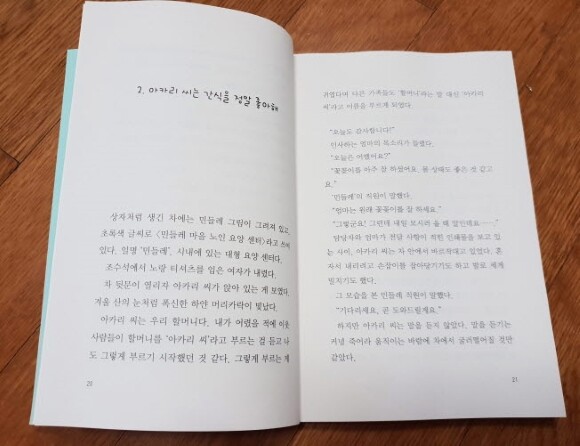 2. 아카리 씨는 간식을 정말 좋아해
상자처럼 생긴 차에는 민들레 그림이 그려져 있고,
초록색 글씨로 〈민들레 마을 노인 요양 센터〉라고 쓰여
있다. 일명 '민들레'. 시내에 있는 대형 요양 센터다.
조수석에서 노랑 티셔츠를 입은 여자가 내렸다.
차 뒷문이 열리자 아카리 씨가 앉아 있는 게 보였다.
겨울 산의 눈처럼 폭신한 하얀 머리카락이 빛났다.
아카리 씨는 우리 할머니다. 내가 어렸을 적에 이웃
사람들이 할머니를 '아카리 씨'라고 부르는 걸 듣고 나
도 그렇게 부르기 시작했던 것 같다. 그렇게 부르는 게
20
귀엽다며 다른 가족들도 '할머니'라는 말 대신 '아카리
씨'라고 이름을 부르게 되었다.
"오늘도 감사합니다!"
인사하는 엄마의 목소리가 들렸다.
"오늘은 어땠어요?"
"꽃꽂이를 아주 잘 하셨어요. 몸 상태도 좋은 것 같고
요."
'민들레'의 직원이 말했다.
"엄마는 원래 꽃꽂이를 잘 하세요."
"그렇군요! 그런데 내일 모시러 올 때 말인데요……."
담당자와 엄마가 전달 사항이 적힌 인쇄물을 보고 있
는 사이, 아카리 씨는 차 안에서 버르적대고 있었다. 혼
자서 내리려고 손잡이를 잡아당기기도 하고 발로 세게
밀치기도 했다.
그 모습을 본 민들레 직원이 말했다.
"기다리세요. 곧 도와드릴게요."
하지만 아카리 씨는 말을 듣지 않았다. 말을 듣기는
커녕 죽어라 움직이는 바람에 차에서 굴러떨어질 것만
같았다.
21